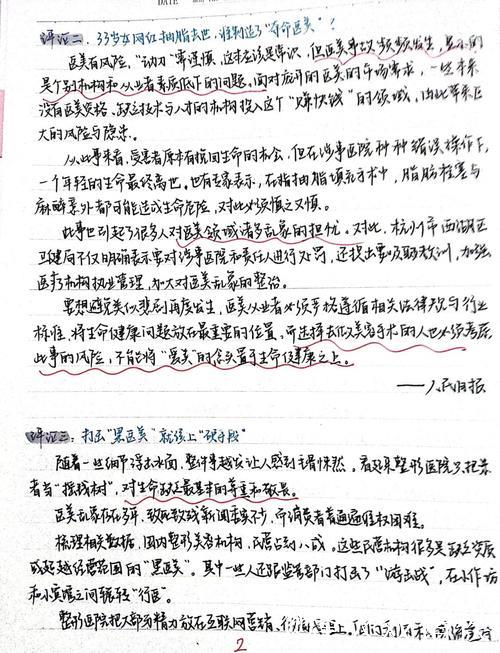 DATE
评论二: 33岁女网红抽脂去世, 谁制造了"夺命医美"?
医美有风险, "动刀"需谨慎, 这本应该是常识, 但医美事故频频发生, 显示的
是个别机构和从业者素质低下的问题。面对庞大的医美的市场需求, 一些本来
没有医美资格、缺乏技术与人才的机构投入这个"赚快钱"的领域, 由此带来巨
大的风险与隐患。
从此事来看, 受害者原本有挽回生命的机会, 但在涉事医院种种错误操作下,
一个年轻的生命最终离世。也有专家表示, 在脂抽脂填充手术中, 脂肪栓塞与
麻醉意外都可能造成生命危险, 对此必须慎之又慎。
此事也引起了很多人对医美领域诸多乱象的担忧。对此, 杭州市西湖区
卫健局不仅明确表示要对涉事医院和责任人进行处罚, 还提出要汲取教训, 加强
医疗机构执业管理, 加大对医美乱象的整治。
要想避免类似悲剧再度发生, 医美从业者必须严格遵循相关法律规与行业
标准, 将生命健康问题放在最重要的位置, 而选择去做美容手术的人也必须考虑
此事的风险, 不能将"爱美"的念头置于生命健康之上。
——人民日报
评论三: 打击"黑医美"就该上"硬手段"
随着一些细节浮出水面, 整件事越发让人感到毛骨悚然。看起来整形医院只把患
者当"摇钱树", 对生命缺乏最基本的尊重和敬畏。
医美乱象存在多年, 致死致残新闻着实不少, 而消费者普遍遭维权困难。
梳理相关数据, 国内整形美容机构, 民营占到八成。这些民营机构很多是缺乏资质
或超越经营范围的"黑医美"。其中一些人还跟监管部门打起了"游击战", 在小作坊
和小宾馆之间辗转"行医"。
整形医院把大部分精力放在互联网营销、
2